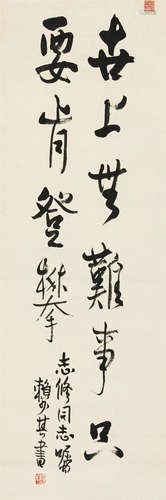 世上無難事只
要肯登攀
志修同志嘱
賴少其書